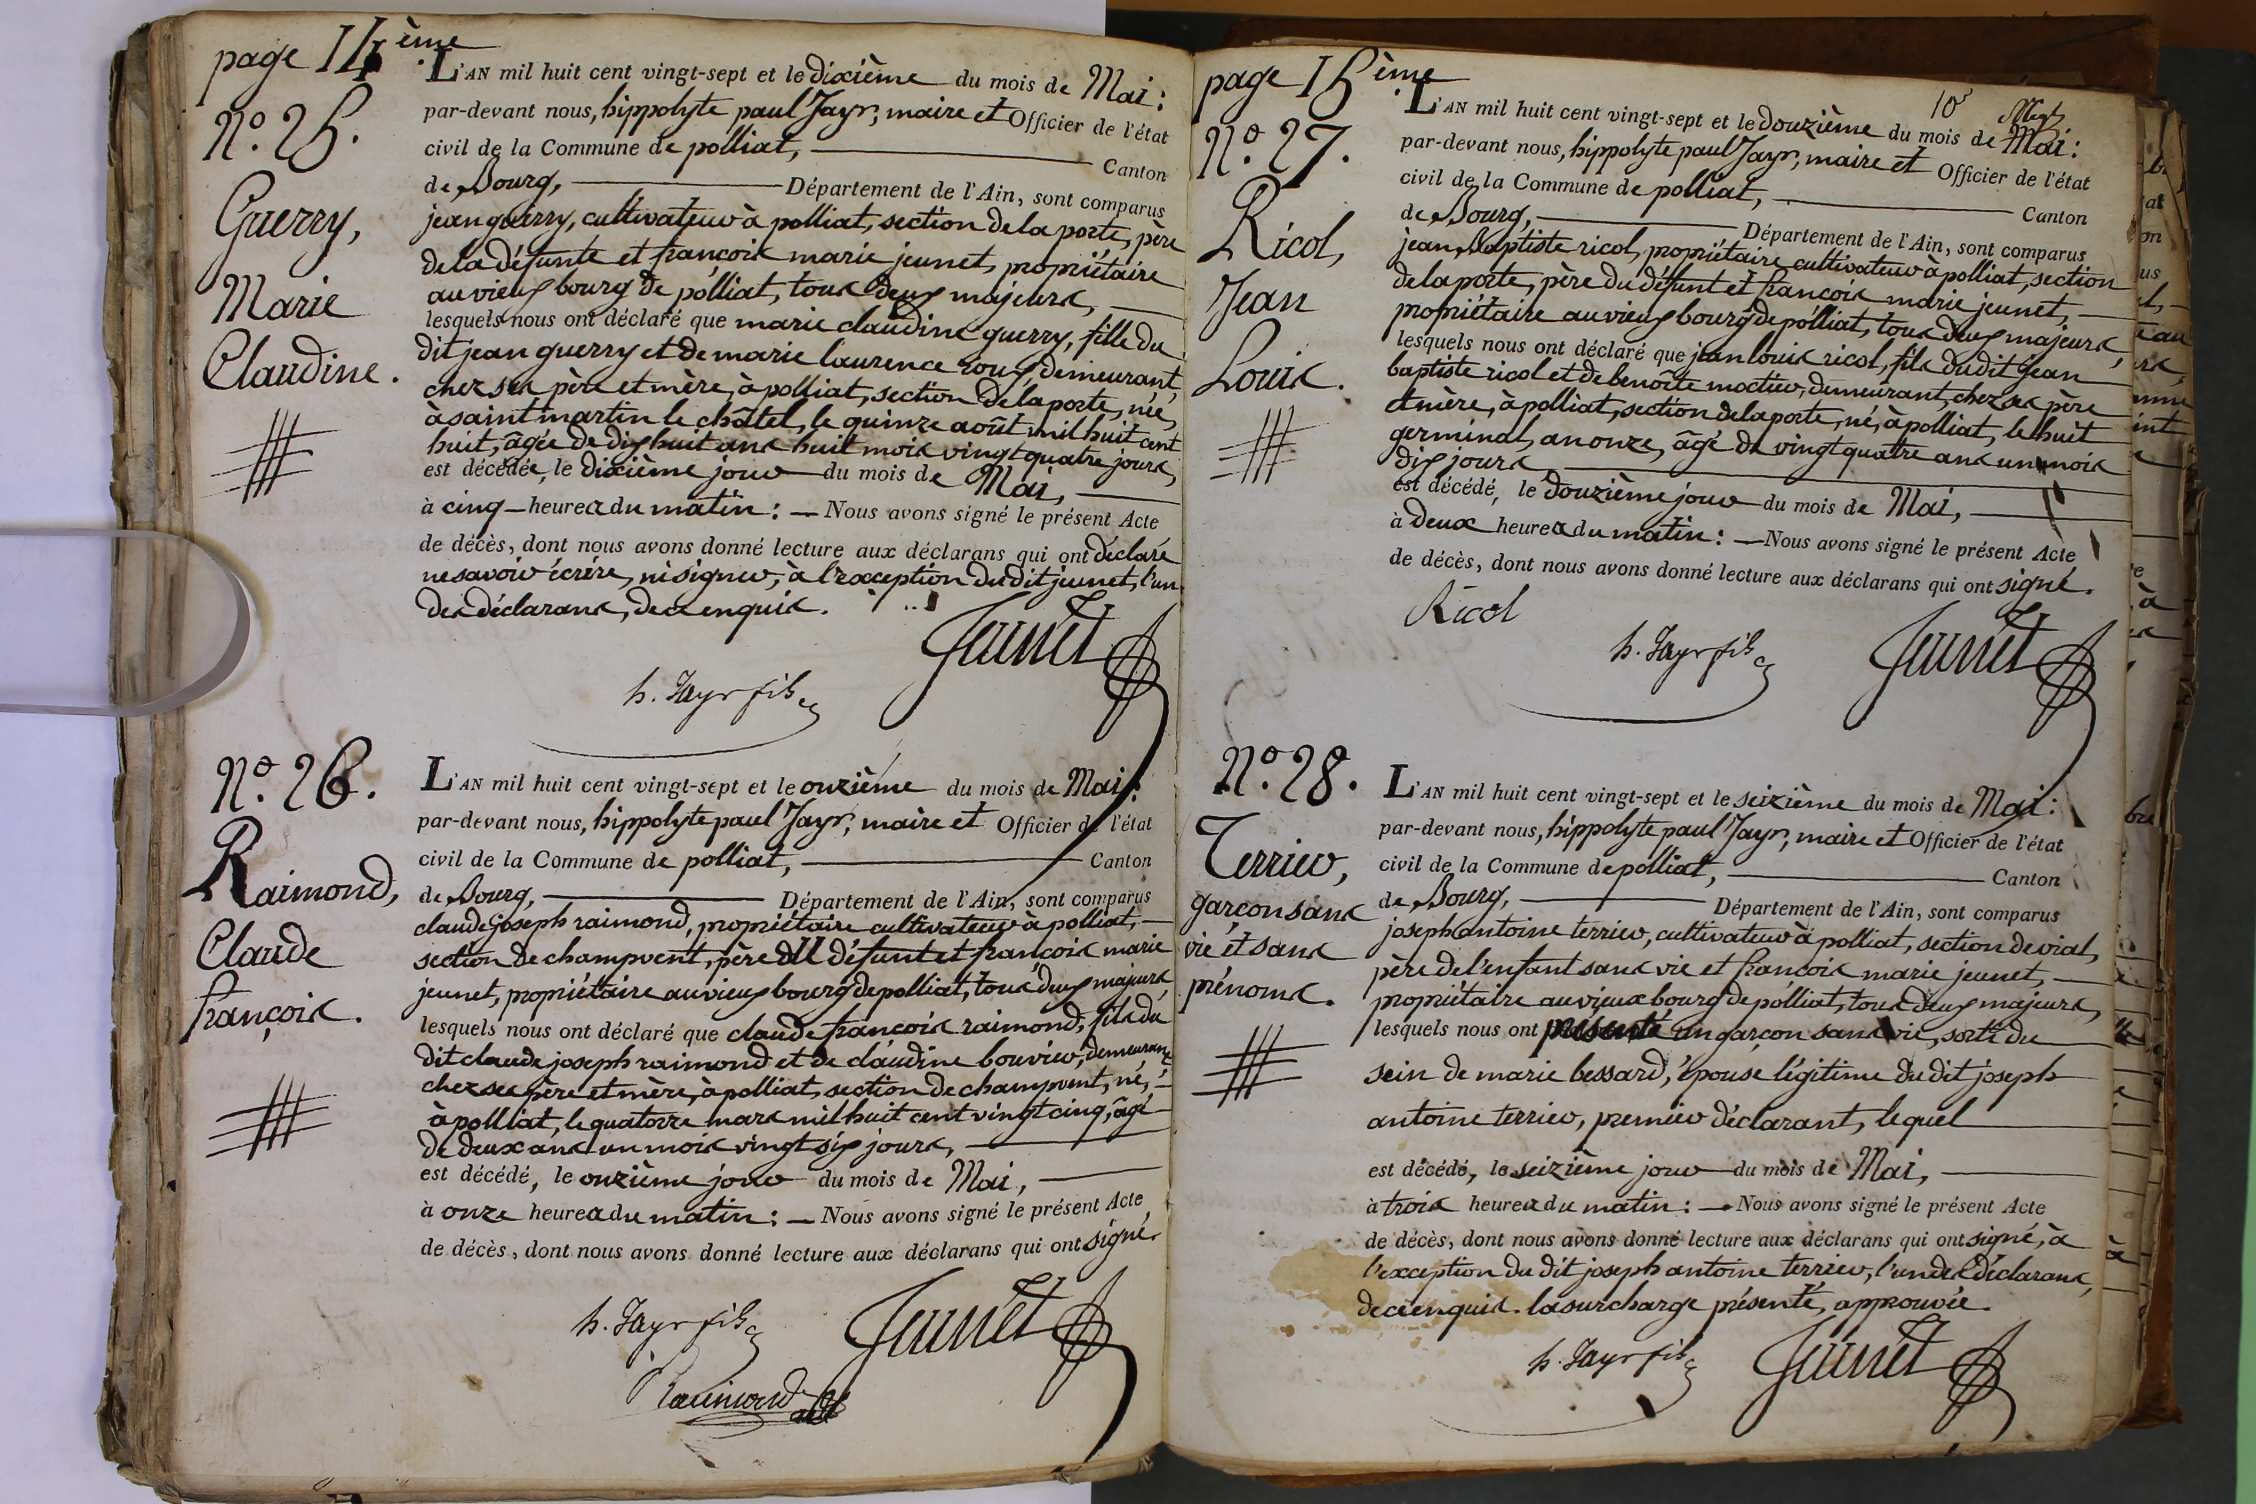 page 14ème.
N.º 25.
Guerry,
Marie
Claudine.
L'AN mil huit cent vingt-sept et le dixième du mois de Mai:
par-devant nous, hippolyte paul Jayr, maire et Officier de l'état
civil de la Commune de polliat, Canton
de Bourg, Département de l'Ain, sont comparus
jean guerry, cultivateur à polliat, section de la porte, père
de la défunte et françois marie jeunet, propriétaire
au vieux bourg de polliat, tous deux majeurs,
lesquels nous ont déclaré que marie claudine guerry, fille du
dit jean guerry et de marie laurence roux, demeurant,
chez ses père et mère, à polliat, section de la porte, née,
à saint martin le châtel, le quinze août mil huit cent
huit, âgée de dix huit ans huit mois vingt quatre jours,
est décédée, le dixième jour du mois de Mai,
à cinq heures du matin: Nous avons signé le présent Acte
de décès, dont nous avons donné lecture aux déclarans qui ont déclaré
ne savoir écrire, ni signer, à l'exception du dit jeunet, l'un
des déclarans, de ce enquis.
Jeunet
h. Jayr fils
N.º 26.
Raimond,
Claude
françois.
L'AN mil huit cent vingt-sept et le onzième du mois de Mai:
par-devant nous, hippolyte paul Jayr, maire et Officier de l'état
civil de la Commune de polliat, Canton
de Bourg, Département de l'Ain, sont comparus
claude joseph raimond, propriétaire cultivateur à polliat,
section de champvent, père du défunt et françois marie
jeunet, propriétaire au vieux bourg de polliat, tous deux majeurs,
lesquels nous ont déclaré que claude françois raimond, fils du
dit claude joseph raimond et de claudine bouvier, demeurant
chez ses père et mère, à polliat, section de champvent, né,
à polliat, le quatorze mars mil huit cent vingt cinq, âgé
de deux ans un mois vingt six jours,
est décédé, le onzième jour du mois de Mai,
à onze heures du matin: Nous avons signé le présent Acte
de décès, dont nous avons donné lecture aux déclarans qui ont signé.
h. Jayr fils Jeunet
Raimond
page 15ème.
N.º 27.
Ricol,
Jean
Louis.
L'AN mil huit cent vingt-sept et le douzième du mois de Mai:
par-devant nous, hippolyte paul Jayr, maire et Officier de l'état
civil de la Commune de polliat, Canton
de Bourg, Département de l'Ain, sont comparus
jean Baptiste ricol, propriétaire cultivateur à polliat, section
de la porte, père du défunt et françois marie jeunet,
propriétaire au vieux bourg de polliat, tous deux majeurs,
lesquels nous ont déclaré que jean louis ricol, fils du dit jean
baptiste ricol et de benoîte moctier, demeurant, chez ses père
et mère, à polliat, section de la porte, né, à polliat, le huit
germinal, an onze, âgé de vingt quatre ans un mois
dix jours
est décédé, le douzième jour du mois de Mai,
à deux heures du matin: Nous avons signé le présent Acte
de décès, dont nous avons donné lecture aux déclarans qui ont signé.
Ricol
h. Jayr fils Jeunet
N.º 28.
Terrier,
garçon sans
vie et sans
prénoms.
L'AN mil huit cent vingt-sept et le seizième du mois de Mai:
par-devant nous, hippolyte paul Jayr, maire et Officier de l'état
civil de la Commune de polliat, Canton
de Bourg, Département de l'Ain, sont comparus
joseph antoine terrier, cultivateur à polliat, section de vial,
père de l'enfant sans vie et françois marie jeunet,
propriétaire au vieux bourg de polliat, tous deux majeurs,
lesquels nous ont présenté un garçon sans vie, sorti du
sein de marie bessard, épouse légitime du dit joseph
antoine terrier, premier déclarant, lequel
est décédé, le seizième jour du mois de Mai,
à trois heures du matin: Nous avons signé le présent Acte
de décès, dont nous avons donné lecture aux déclarans qui ont signé, à
l'exception du dit joseph antoine terrier, l'un des déclarans,
de ce enquis. la surcharge présenté, approuvée.
h. Jayr fils Jeunet